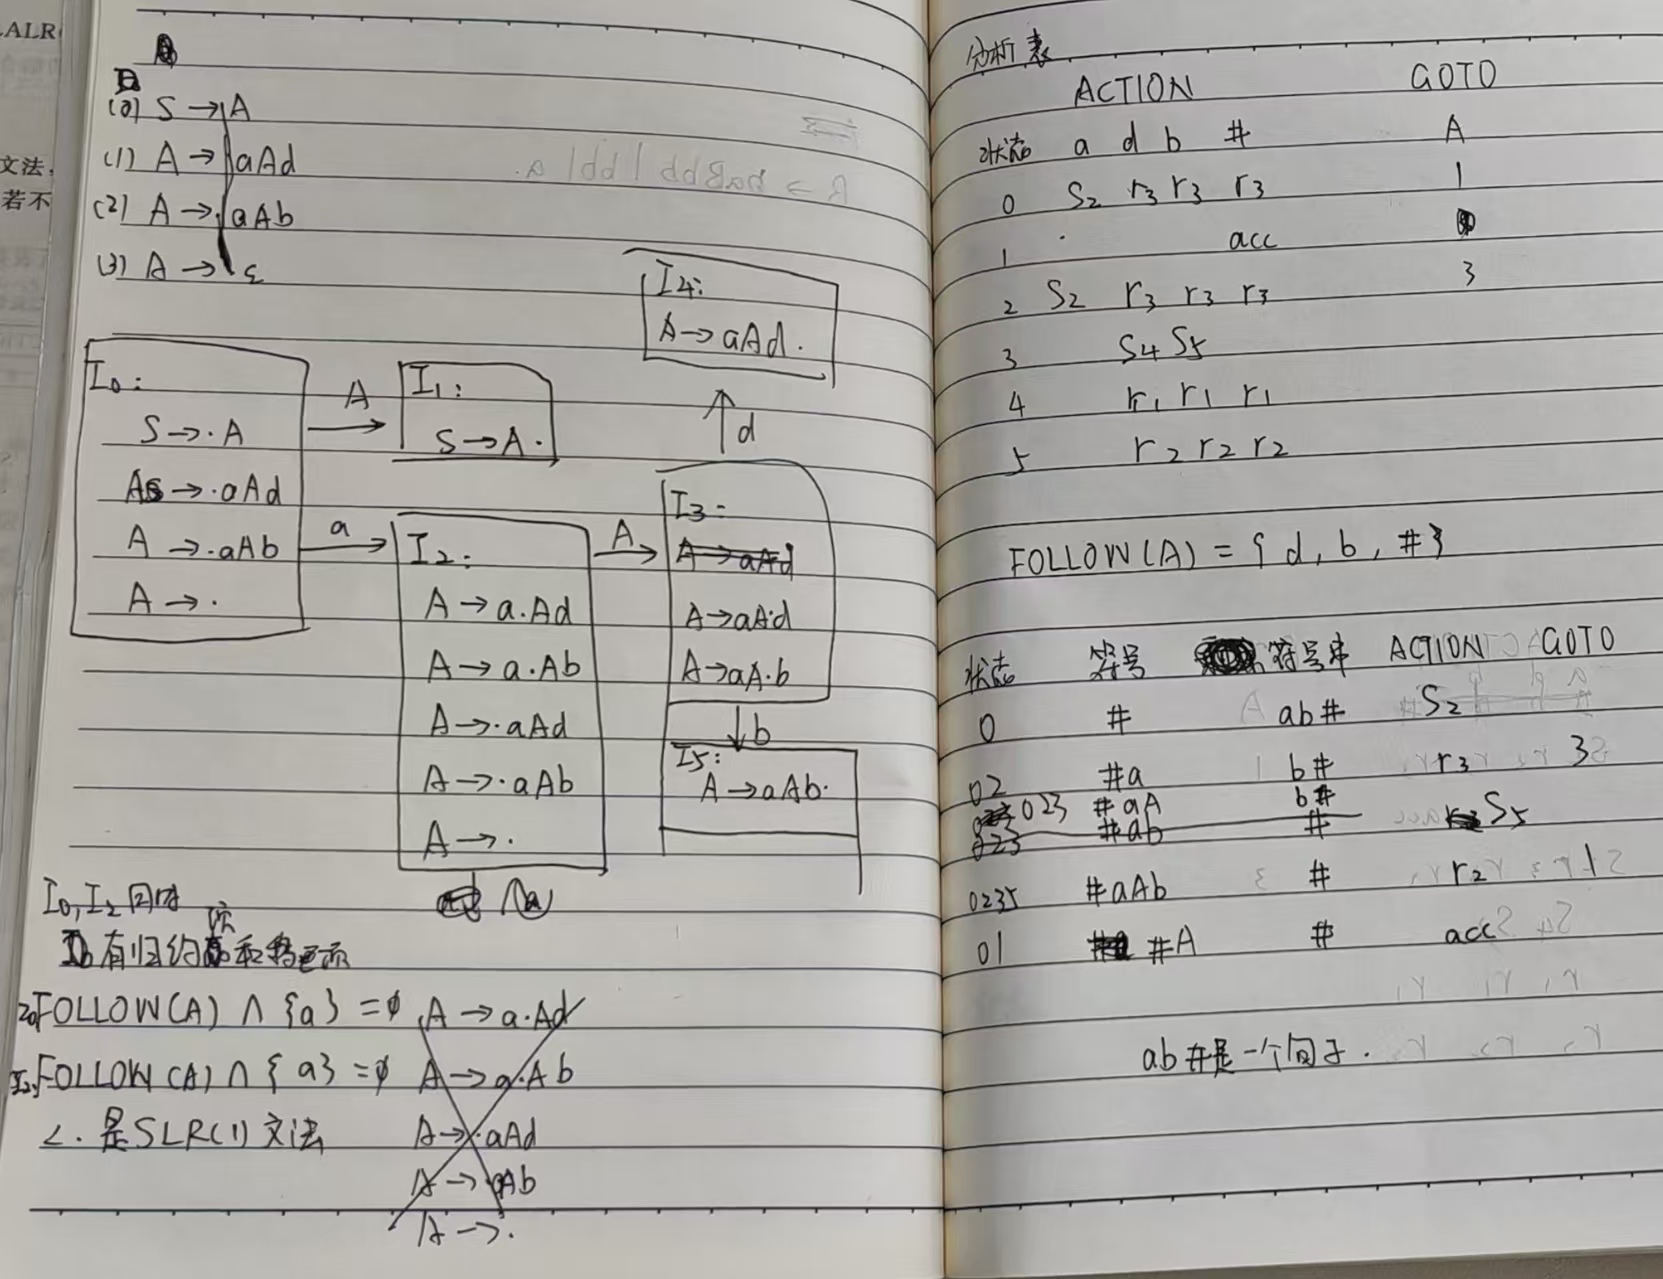 ALR
文法,
若不
(0) S → A
(1) A → aAd
(2) A → aAb
(3) A → ε
I0:
S → ·A
A → ·aAd
A → ·aAb
A → ·
A
I1:
S → A·
a
I2:
A → a·Ad
A → a·Ab
A → ·aAd
A → ·aAb
A → ·
a
A
I3:
A → aAd
A → aA·d
A → aA·b
d
I4:
A → aAd·
b
I5:
A → aAb·
I0, I2 同时
有归约项和移进项
I0: FOLLOW(A) ∩ {a} = ∅
I2: FOLLOW(A) ∩ {a} = ∅
∴ 是SLR(1)文法
A → a·Ad
A → a·Ab
A → ·aAd
A → ·aAb
A → ·
分析表
ACTION GOTO
状态 a d b # A
0 S2 r3 r3 r3 1
1 acc
2 S2 r3 r3 r3 3
3 S4 S5
4 r1 r1 r1
5 r2 r2 r2
FOLLOW(A) = { d, b, # }
状态 符号 符号串 ACTION GOTO
0 # ab# S2
02 #a b# r3 3
023 #aA b# S5
023 #ab #
0235 #aAb # r2 1
01 #A # acc
ab#是一个句子.